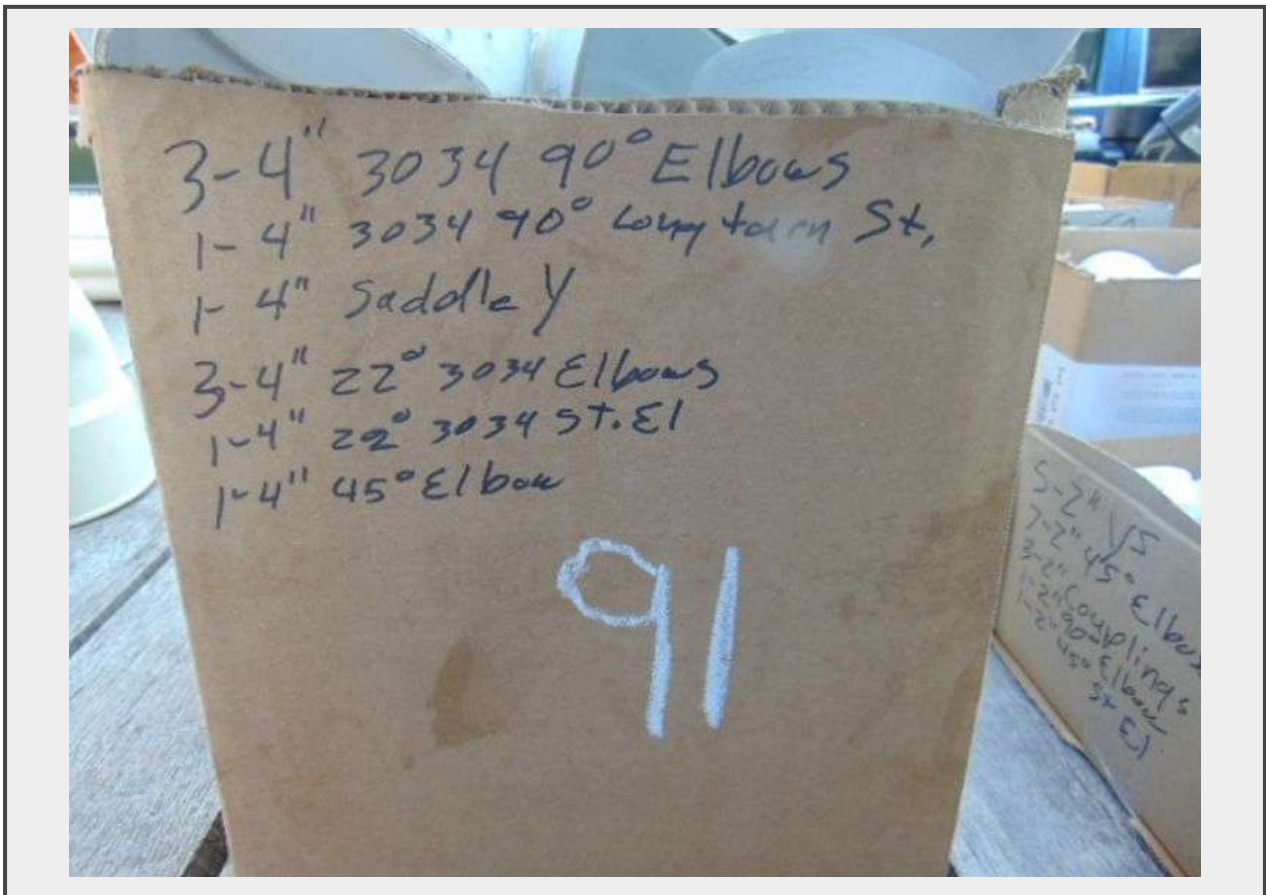 3-4" 3034 90° Elbows
1-4" 3034 90° Long turn St,
1-4" Saddle Y
3-4" 22° 3034 Elbows
1-4" 22° 3034 ST. El
1-4" 45° Elbow
91
5-2" YS
7-2" 45° Elbows
3-2" Couplings
1-2" 90° Elbow
1-2" 45° St El